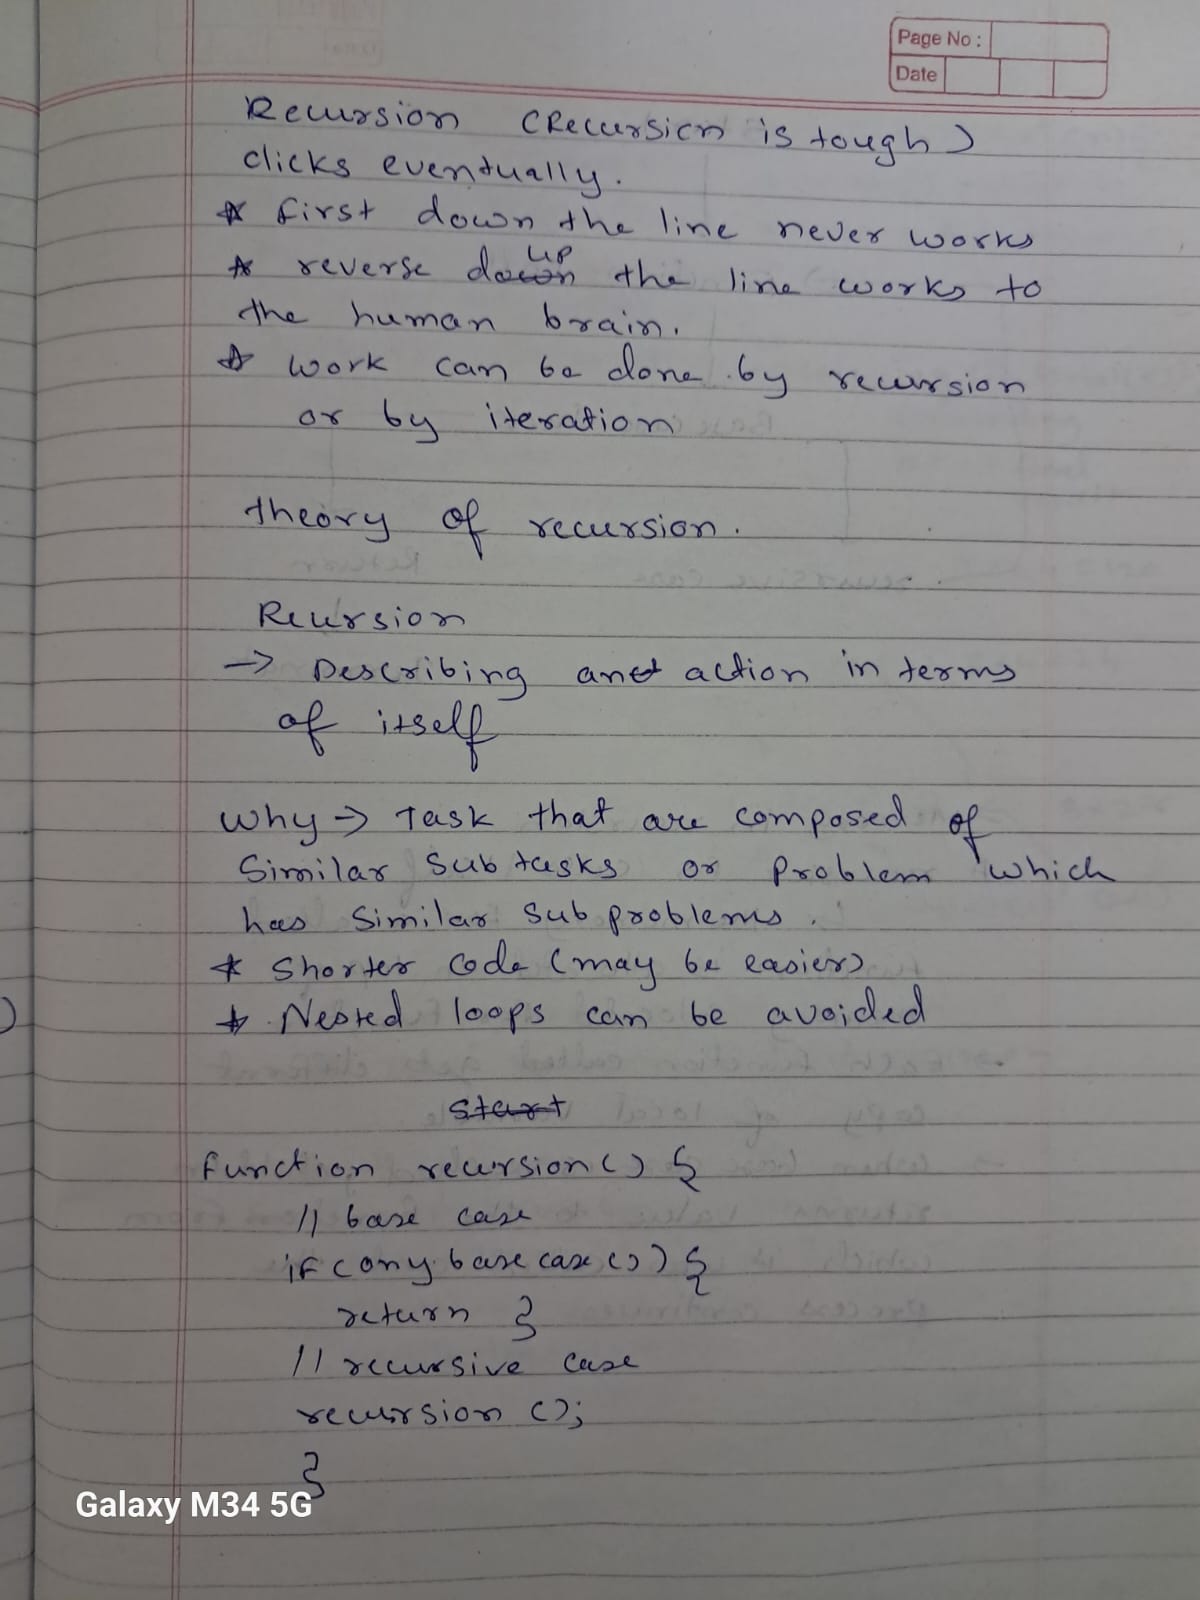 Page No :
Date
Recursion (Recursion is tough)
clicks eventually.
* first down the line never works
* reverse up the line works to
the human brain.
* work can be done by recursion
or by iteration
theory of recursion.
Recursion
-> Describing an action in terms
of itself
Why -> Task that are composed of
Similar Sub tasks or Problem which
has Similar Sub problems.
* Shorter code (may be easier)
* Nested loops can be avoided
start
function recursion() {
// base case
if (any base case ()) {
return }
// recursive case
recursion ();
}
Galaxy M34 5G